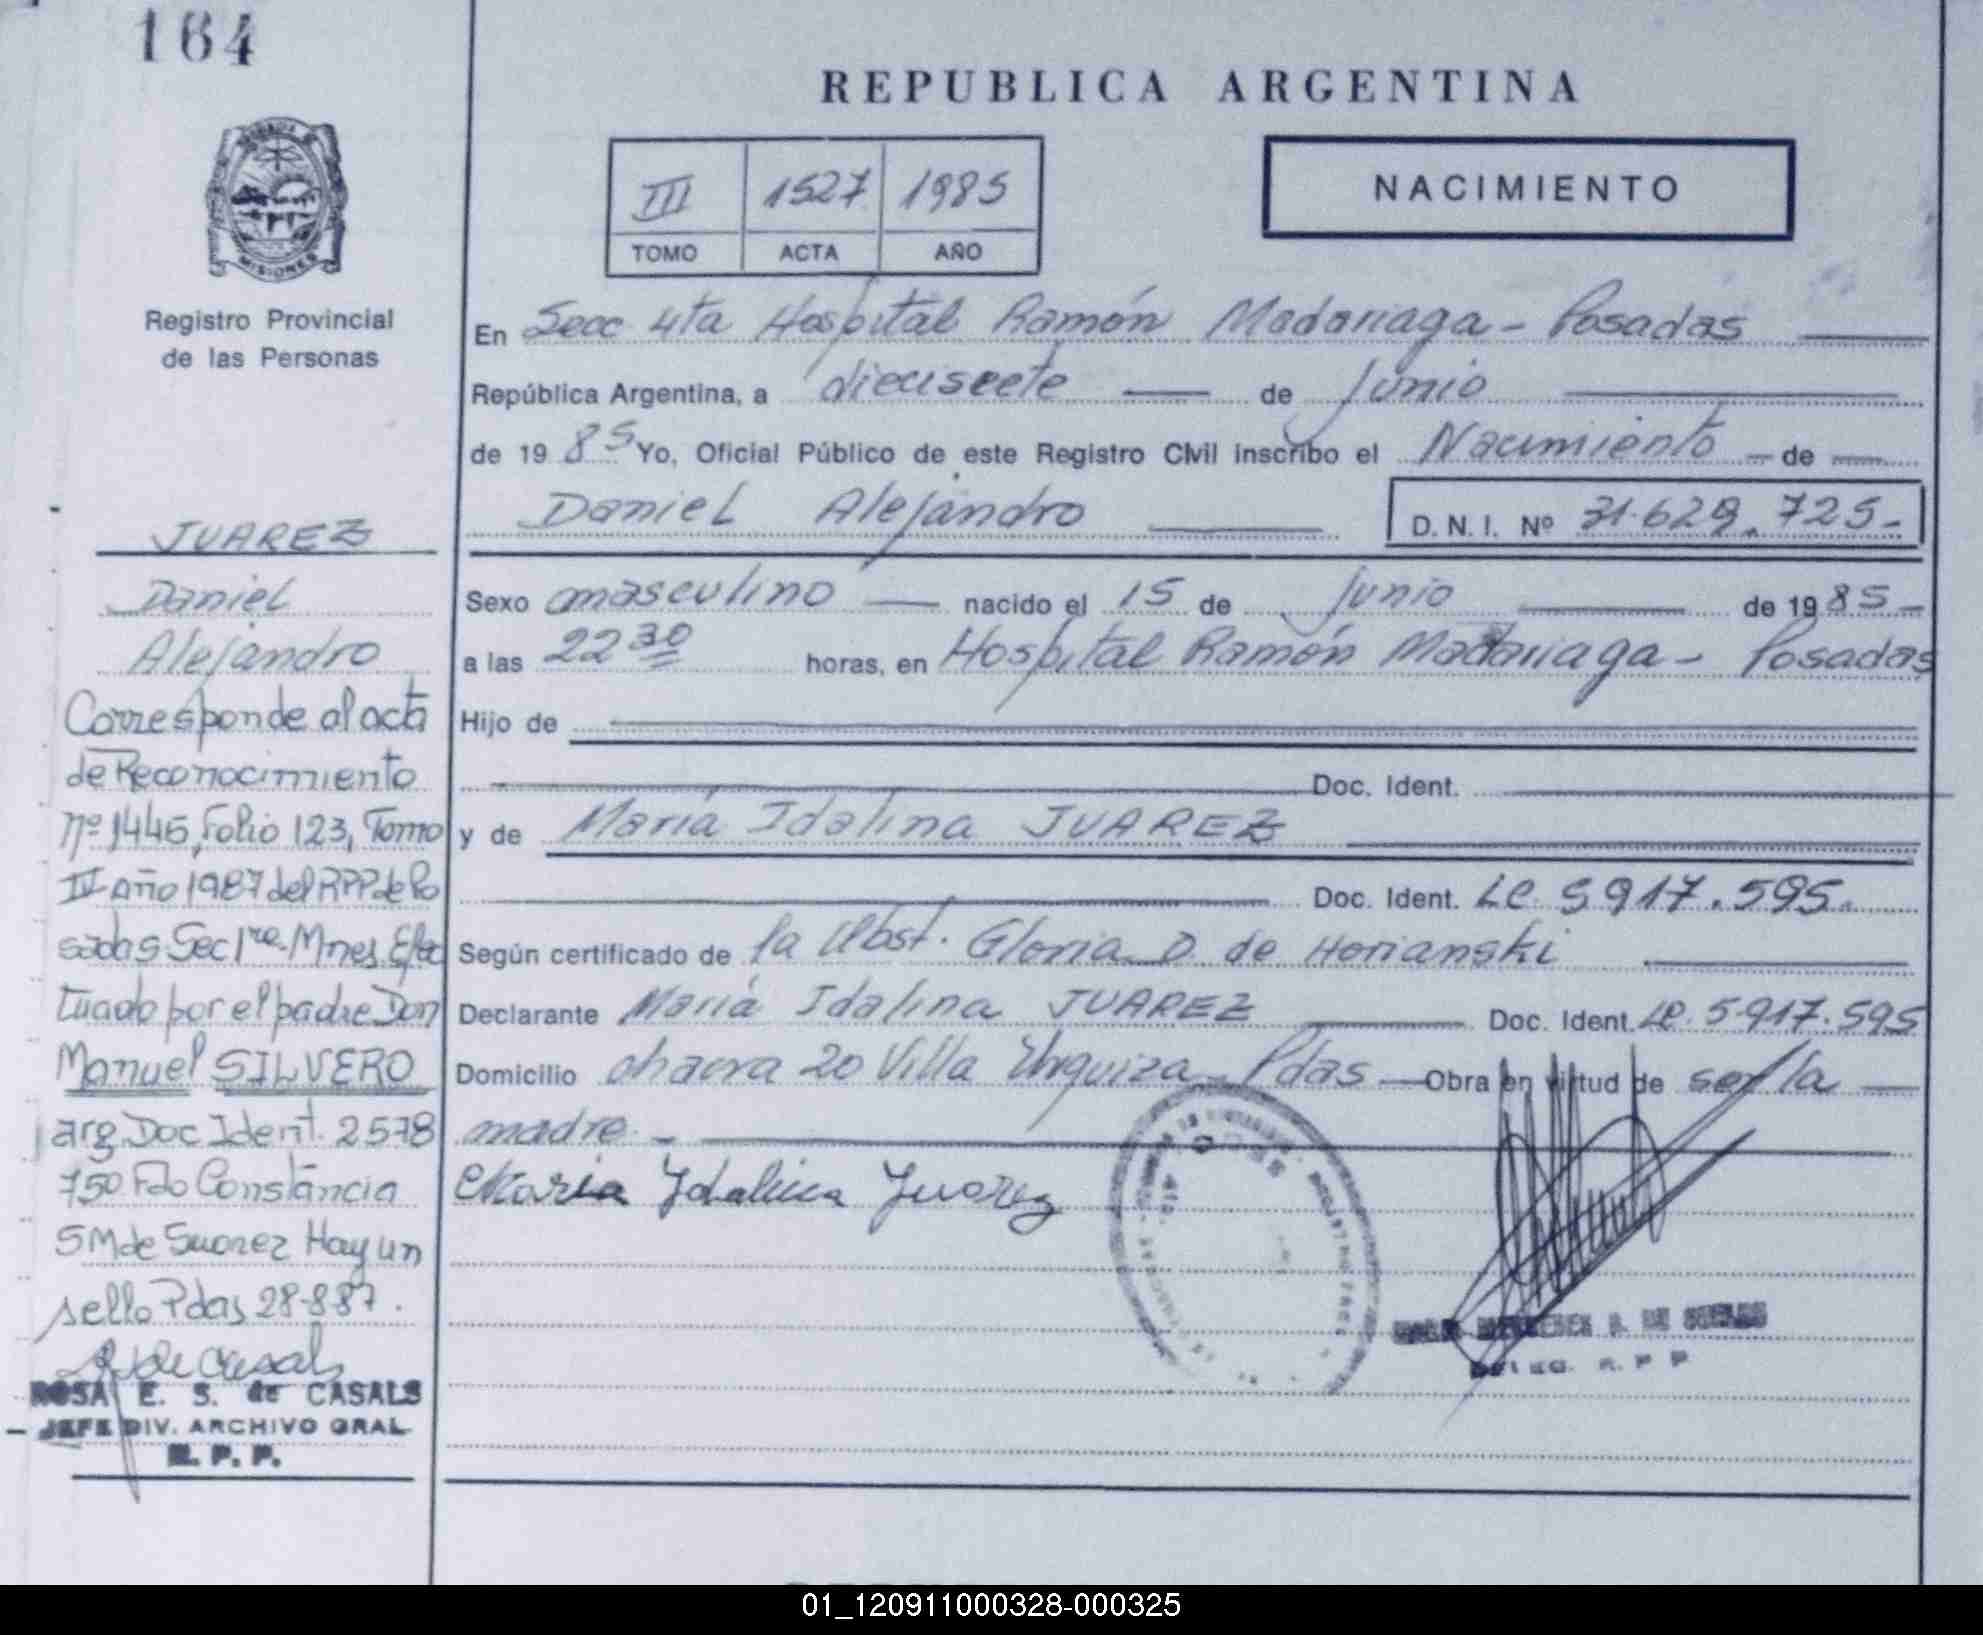 164
MISIONES
Registro Provincial
de las Personas
REPUBLICA ARGENTINA
III 1527 1985
TOMO ACTA AÑO
NACIMIENTO
En Secc 4ta Hospital Ramón Madariaga - Posadas
República Argentina, a diecisiete de Junio
de 1985 Yo, Oficial Público de este Registro Civil inscribo el Nacimiento de
Daniel Alejandro D.N.I. Nº 31.629.725-
Sexo masculino nacido el 15 de Junio de 1985-
a las 22 30 horas, en Hospital Ramón Madariaga - Posadas
Hijo de
Doc. Ident.
y de María Idalina JUAREZ
Doc. Ident. LC. 5917.595.
Según certificado de la Obst. Gloria D. de Horianski
Declarante María Idalina JUAREZ Doc. Ident. LC. 5.917.595
Domicilio chacra 20 Villa Urquiza - Pdas Obra en virtud de ser la
madre.-
Maria Ydalina Juarez
DELEG. R. P. P.
JUAREZ
Daniel
Alejandro
Corresponde al acta
de Reconocimiento
nº 1445, Folio 123, Tomo
III año 1987 del RPP de Po
sadas Sec 1ra. Mnes. Efec
tuado por el padre Don
Manuel SILVERO
arg. Doc Ident. 2578
750 Fdo Constancia
SM de Suarez Hay un
sello Pdas 28-8-87.
R S de Casals
ROSA E. S. de CASALS
JEFE DIV. ARCHIVO GRAL
R. P. P.
01_120911000328-000325